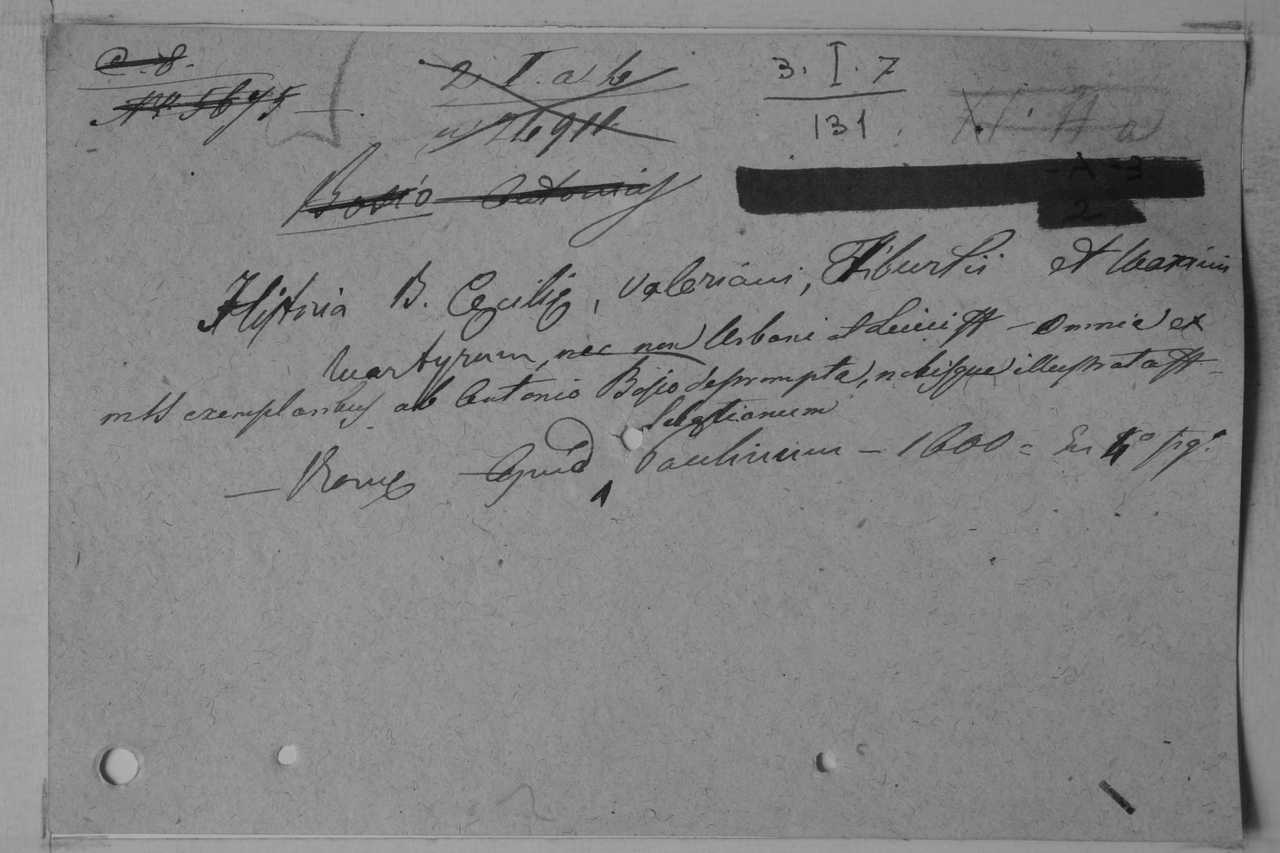 C. 8.
Nº 5675 —.
2 I. a. b
3. I. 7
131
Bosio Antonius
Historia B. Cęcilię, Valeriani, Tiburtii et Maximi
Martyrum, nec non Urbani et Lucii PP — Omnia ex
mss exemplaribus ab Antonio Bosio deprompta, notisque illustrata PP —
— Romę Apud Paulinum — 1600 = En 4º pgº